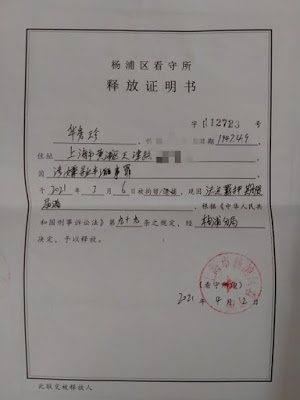 杨浦区看守所
释放证明书
字〔 〕12723 号
性别 1967.4.9
住址 上海市黄浦区天津路
因 涉嫌寻衅滋事罪
于 2021 年 3 月 6 日被拘留/逮捕,现因 法定羁押期限
届满 ,根据《中华人民共
和国刑事诉讼法》第九十九条之规定,经 杨浦分局
决定,予以释放。
(看守所印)
2021 年 4 月 2 日
此联交被释放人